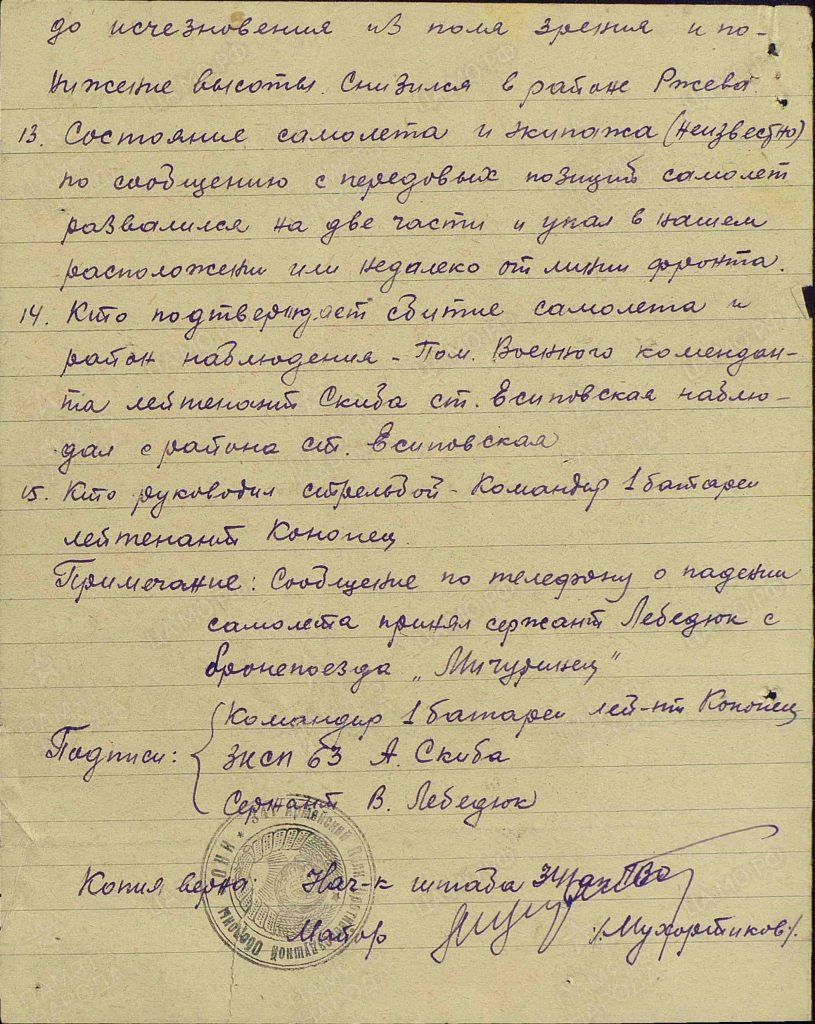 до исчезновения из поля зрения и по-
нижение высоты. Снизился в районе Ржева.
13. Состояние самолета и экипажа (неизвестно)
по сообщению с передовых позиций самолет
развалился на две части и упал в нашем
расположении или недалеко от линии фронта.
14. Кто подтверждает сбитие самолета и
район наблюдения - Пом. Военного комендан-
та лейтенант Скиба ст. Есиповская наблю-
дал с района ст. Есиповская
15. Кто руководил стрельбой - Командир 1 батареи
лейтенант Конопец.
Примечание: Сообщение по телефону о падении
самолета принял сержант Лебедюк с
бронепоезда „Мичуринец"
Подписи: Командир 1 батареи лей-нт Конопец
ЗКСП 63 А. Скиба
Сержант В. Лебедюк
Копия верна: Нач-к штаба
Майор /Мухортиков/.
Воздушной Обороны